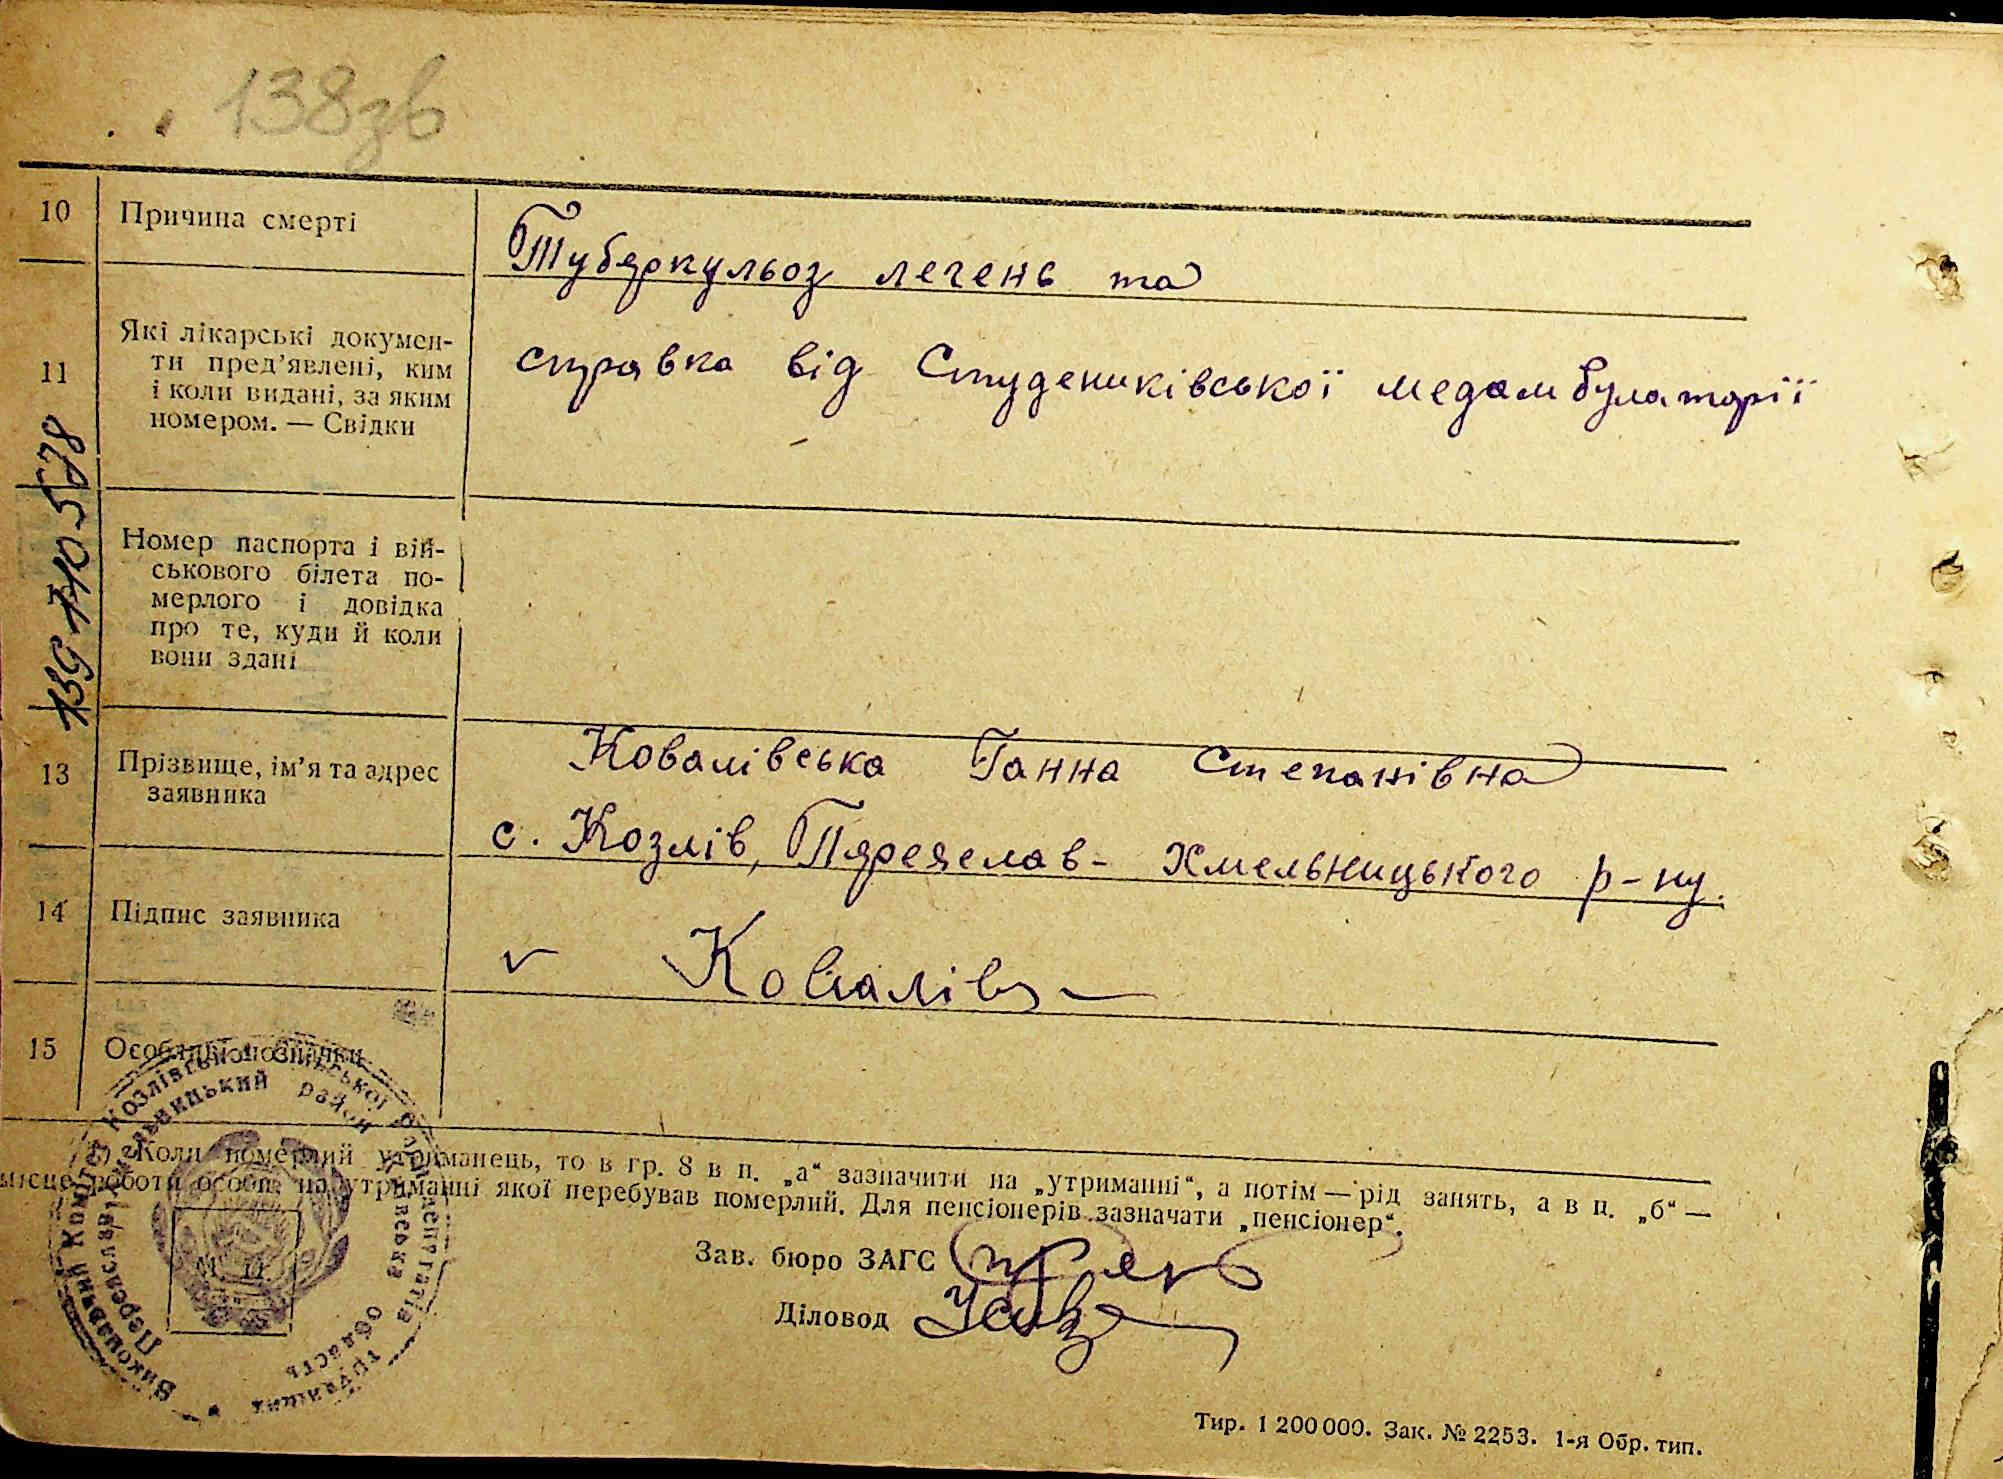 138зв
10 Причина смерті
Туберкульоз легень та
11 Які лікарські докумен-
ти пред’явлені, ким
і коли видані, за яким
номером. — Свідки
справка від Студениківської медамбулаторії
Номер паспорта і вій-
ськового білета по-
мерлого і довідка
про те, куди й коли
вони здані
13 Прізвище, ім’я та адрес
заявника
Ковалівська Ганна Степанівна
с. Козлів, Переяслав-Хмельницького р-ну.
14 Підпис заявника
v Ковалівс
15 Особливі позначки
Виконавчий Комітет Козлівської сільської Ради депутатів трудящих
Переяслав-Хмельницький район Київська область
М. П.
1) Коли померлий утриманець, то в гр. 8 в п. „а“ зазначити на „утриманні“, а потім — рід занять, а в п. „б“ —
місце роботи особи, на утриманні якої перебував померлий. Для пенсіонерів зазначати „пенсіонер“.
Зав. бюро ЗАГС
Діловод
Тир. 1 200 000. Зак. № 2253. 1-я Обр. тип.